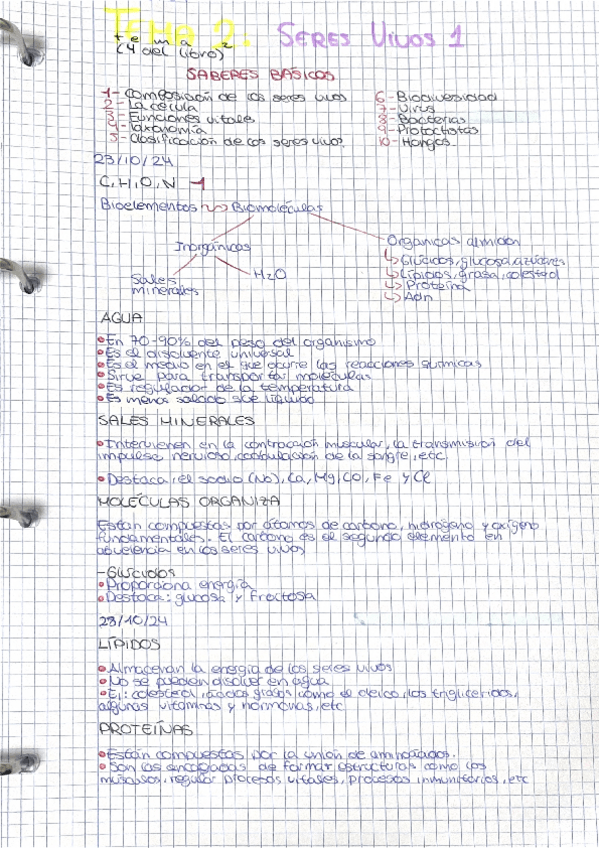 TEMA 2: SERES VIVOS 1
tema 2
(4 del libro)
SABERES BÁSICOS
1- Composición de los seres vivos
2- La célula
3- Funciones vitales
4- Taxonomía
5- Clasificación de los seres vivos
6- Biodiversidad
7- Virus
8- Bacterias
9- Protoctistas
10- Hongos
23/10/24
C, H, O, N
Bioelementos → Biomoléculas
Inorgánicas
Sales minerales
H2O
Organicas almidon
Glúcidos, glucosa, azúcares
Lípidos, grasa, colesterol
Proteína
Adn
AGUA
• En 70-90% del peso del organismo
• Es el disolvente universal
• Es el medio en el que ocurre las reacciones químicas
• Sirve para transportar moleculas
• Es regulador de la temperatura
• Es menos salado que liquido
SALES MINERALES
• Intervienen en la contracción muscular, la transmisión del
impulso nervioso, coagulación de la sangre, etc
• Destaca: el sodio (Na), Ca, Mg, CO, Fe y Cl
MOLÉCULAS ORGANIZA
Están compuestas por átomos de carbono, hidrógeno y oxígeno
fundamentales. El carbono es el segundo elemento en
en los seres vivos
- Glúcidos
• Proporciona energía
• Destaca: glucosa y fructosa
28/10/24
LÍPIDOS
• Almacenan la energía de los seres vivos
• No se pueden disolver en agua
• Ej: colesterol, ácidos grasos como el oleico, los trigliceridos,
algunas vitaminas y hormonas, etc
PROTEÍNAS
• Están compuestas por la unión de aminoácidos.
• Son las encargadas de formar estructuras como los
músculos, regular procesos vitales, procesos inmunitarios, etc